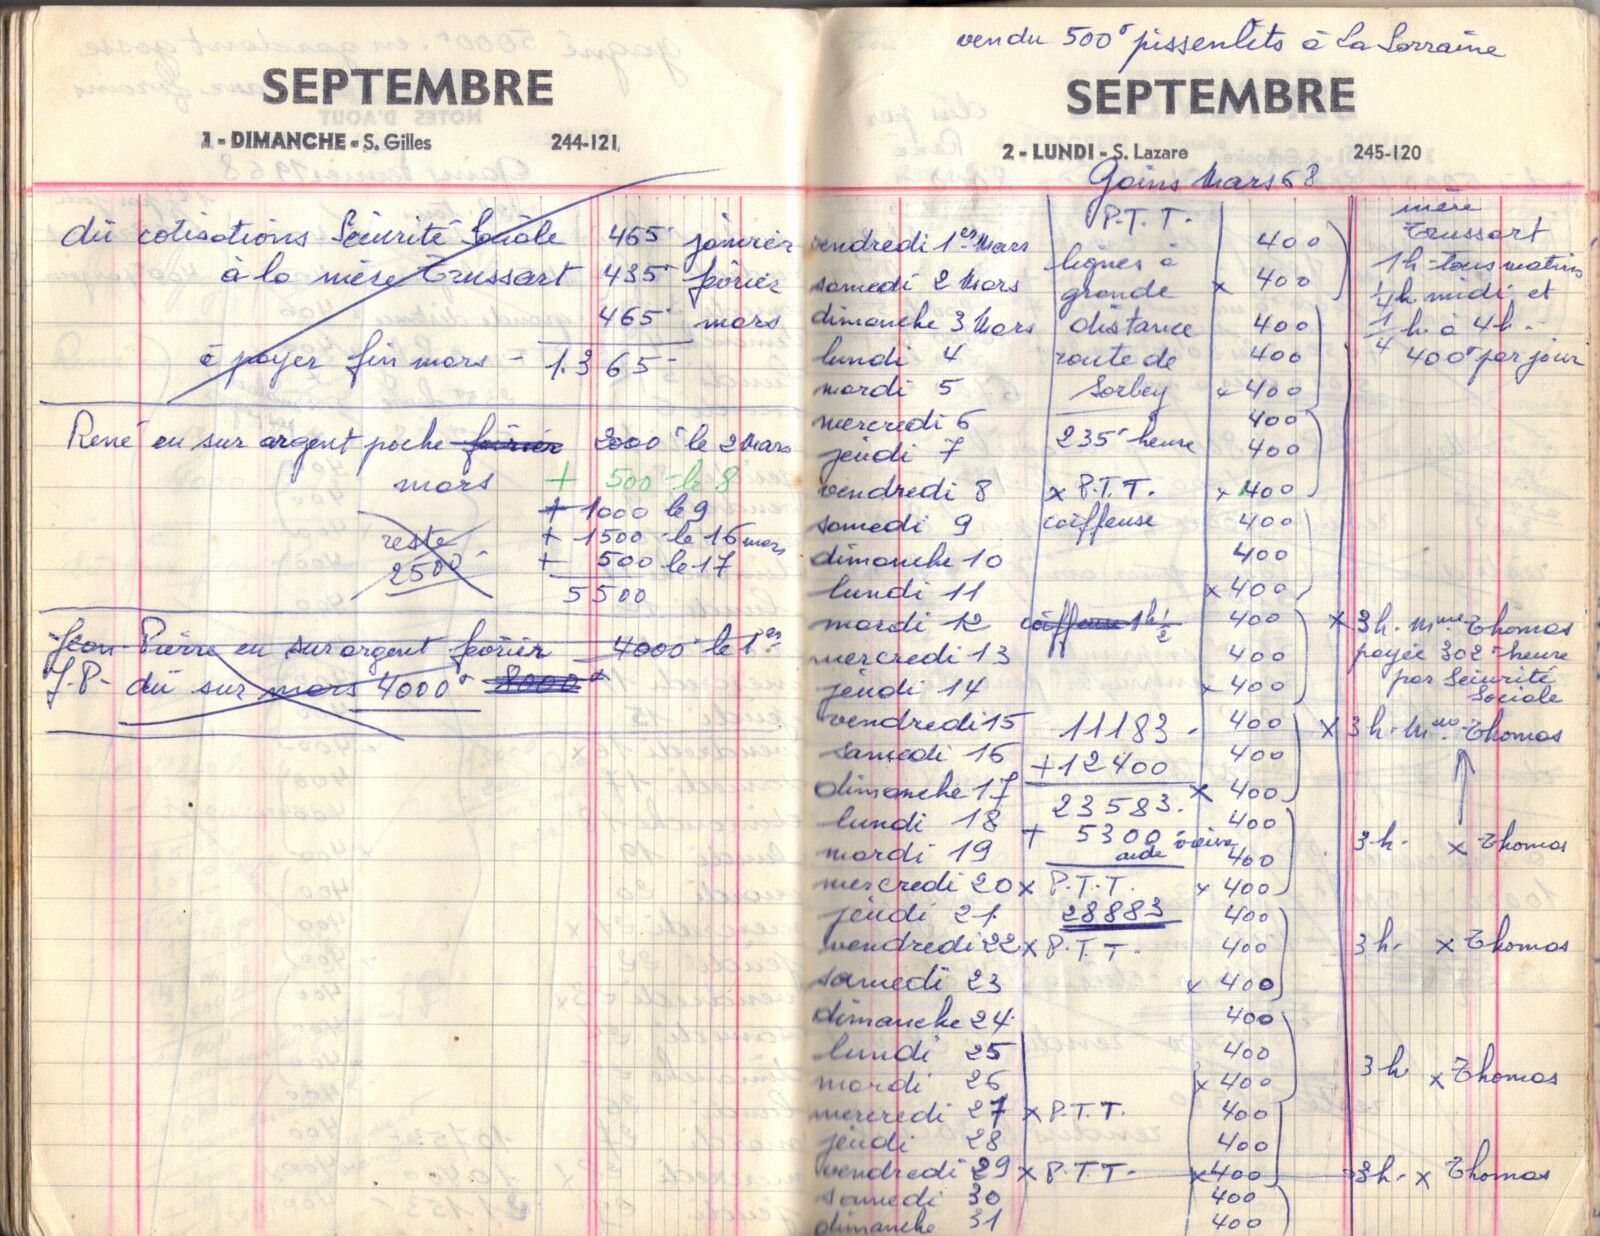 SEPTEMBRE
1 - DIMANCHE - S. Gilles 244-121
dû cotisations Sécurité Sociale 465 janvier
à la mère Trussart 435 février
465 mars
à payer fin mars - 1.365-
René eu sur argent poche février 2000 le 2 Mars
mars + 500 - le 8
+ 1000 le 9
reste + 1500 - le 16 mars
2500 + 500 le 17
5500
Jean-Pierre eu sur argent février 4000 le 1er
J.P- dû sur mars 4000 8000
vendu 500 pissenlits à La Lorraine
SEPTEMBRE
2 - LUNDI - S. Lazare 245-120
Gains Mars 68
P.T.T. mère
vendredi 1er Mars 400 Trussart
lignes à 1h-tous matins
samedi 2 Mars grande x 400 1/4h midi et
dimanche 3 Mars distance 400 1/4 h. à 4h-
lundi 4 route de 400 400 par jour
mardi 5 Sorbey x 400
mercredi 6 400
jeudi 7 235 heure 400
vendredi 8 x P.T.T. x 400
samedi 9 coiffeuse 400
dimanche 10 400
lundi 11 x 400
mardi 12 coiffeuse 1h 1/2 400 x 3h. Mme Thomas
mercredi 13 400 payée 302 heure
jeudi 14 x 400 par Sécurité
Sociale
vendredi 15 11183 - 400 x 3h. Mme Thomas
samedi 16 +12400 400
dimanche 17 x 400
23583.
lundi 18 400
+ 5300
mardi 19 aide 400 3h. x Thomas
mercredi 20 x P.T.T. x 400
jeudi 21. 28883 400
vendredi 22 x P.T.T. 400 3h. x Thomas
samedi 23 x 400
dimanche 24. 400
lundi 25 400
mardi 26 x 400 3h. x Thomas
mercredi 27 x P.T.T. 400
jeudi 28 400
vendredi 29 x P.T.T. x 400 3h. x Thomas
samedi 30 400
dimanche 31 400